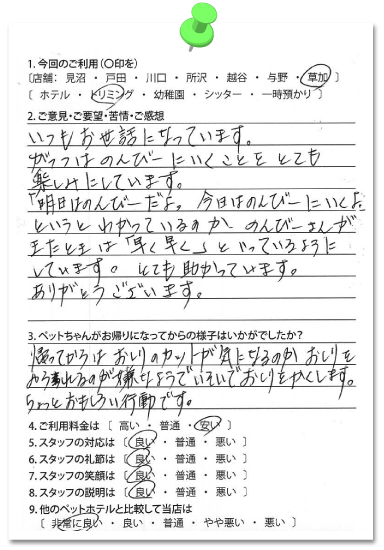 1. 今回のご利用(〇印を)
〔店舗: 見沼 ・ 戸田 ・ 川口 ・ 所沢 ・ 越谷 ・ 与野 ・ 草加 〕
〔 ホテル ・ トリミング ・ 幼稚園 ・ シッター ・ 一時預かり 〕
2. ご意見・ご要望・苦情・ご感想
いつもお世話になっています。
がっつはのんびーにいくことをとても
楽しみにしています。
「明日はのんびーだよ。今日はのんびーにいくよ」
というとわかっているのか、のんびーさんが
きたときは「早く早く」といっているように
しています。とても助かっています。
ありがとうございます。
3. ペットちゃんがお帰りになってからの様子はいかがでしたか?
帰ってからは おしりのカットが気になるのか おしりを
られるのが嫌なようでいそいでおしりをかくします。
ちょっとおもしろい行動です。
4. ご利用料金は〔 高い ・ 普通 ・ 安い 〕
5. スタッフの対応は〔 良い ・ 普通 ・ 悪い 〕
6. スタッフの礼節は〔 良い ・ 普通 ・ 悪い 〕
7. スタッフの笑顔は〔 良い ・ 普通 ・ 悪い 〕
8. スタッフの説明は〔 良い ・ 普通 ・ 悪い 〕
9. 他のペットホテルと比較して当店は
〔 非常に良い ・ 良い ・ 普通 ・ やや悪い ・ 悪い 〕